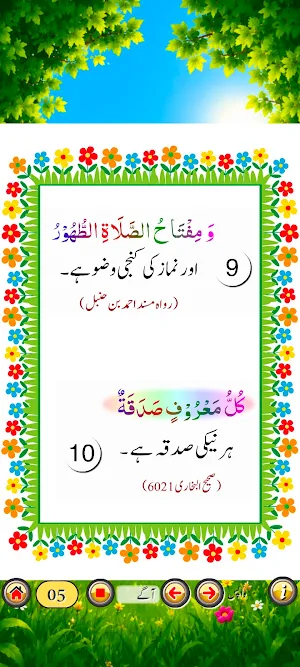 وَ مِفْتَاحُ الصَّلَاةِ الطُّهُوْرُ
9 اور نماز کی کنجی وضو ہے۔
(رواہ مسند احمد بن حنبل)
كُلُّ مَعْرُوْفٍ صَدَقَةٌ
10 ہر نیکی صدقہ ہے۔
(صحیح البخاری 6021)
05 آگے واپس i